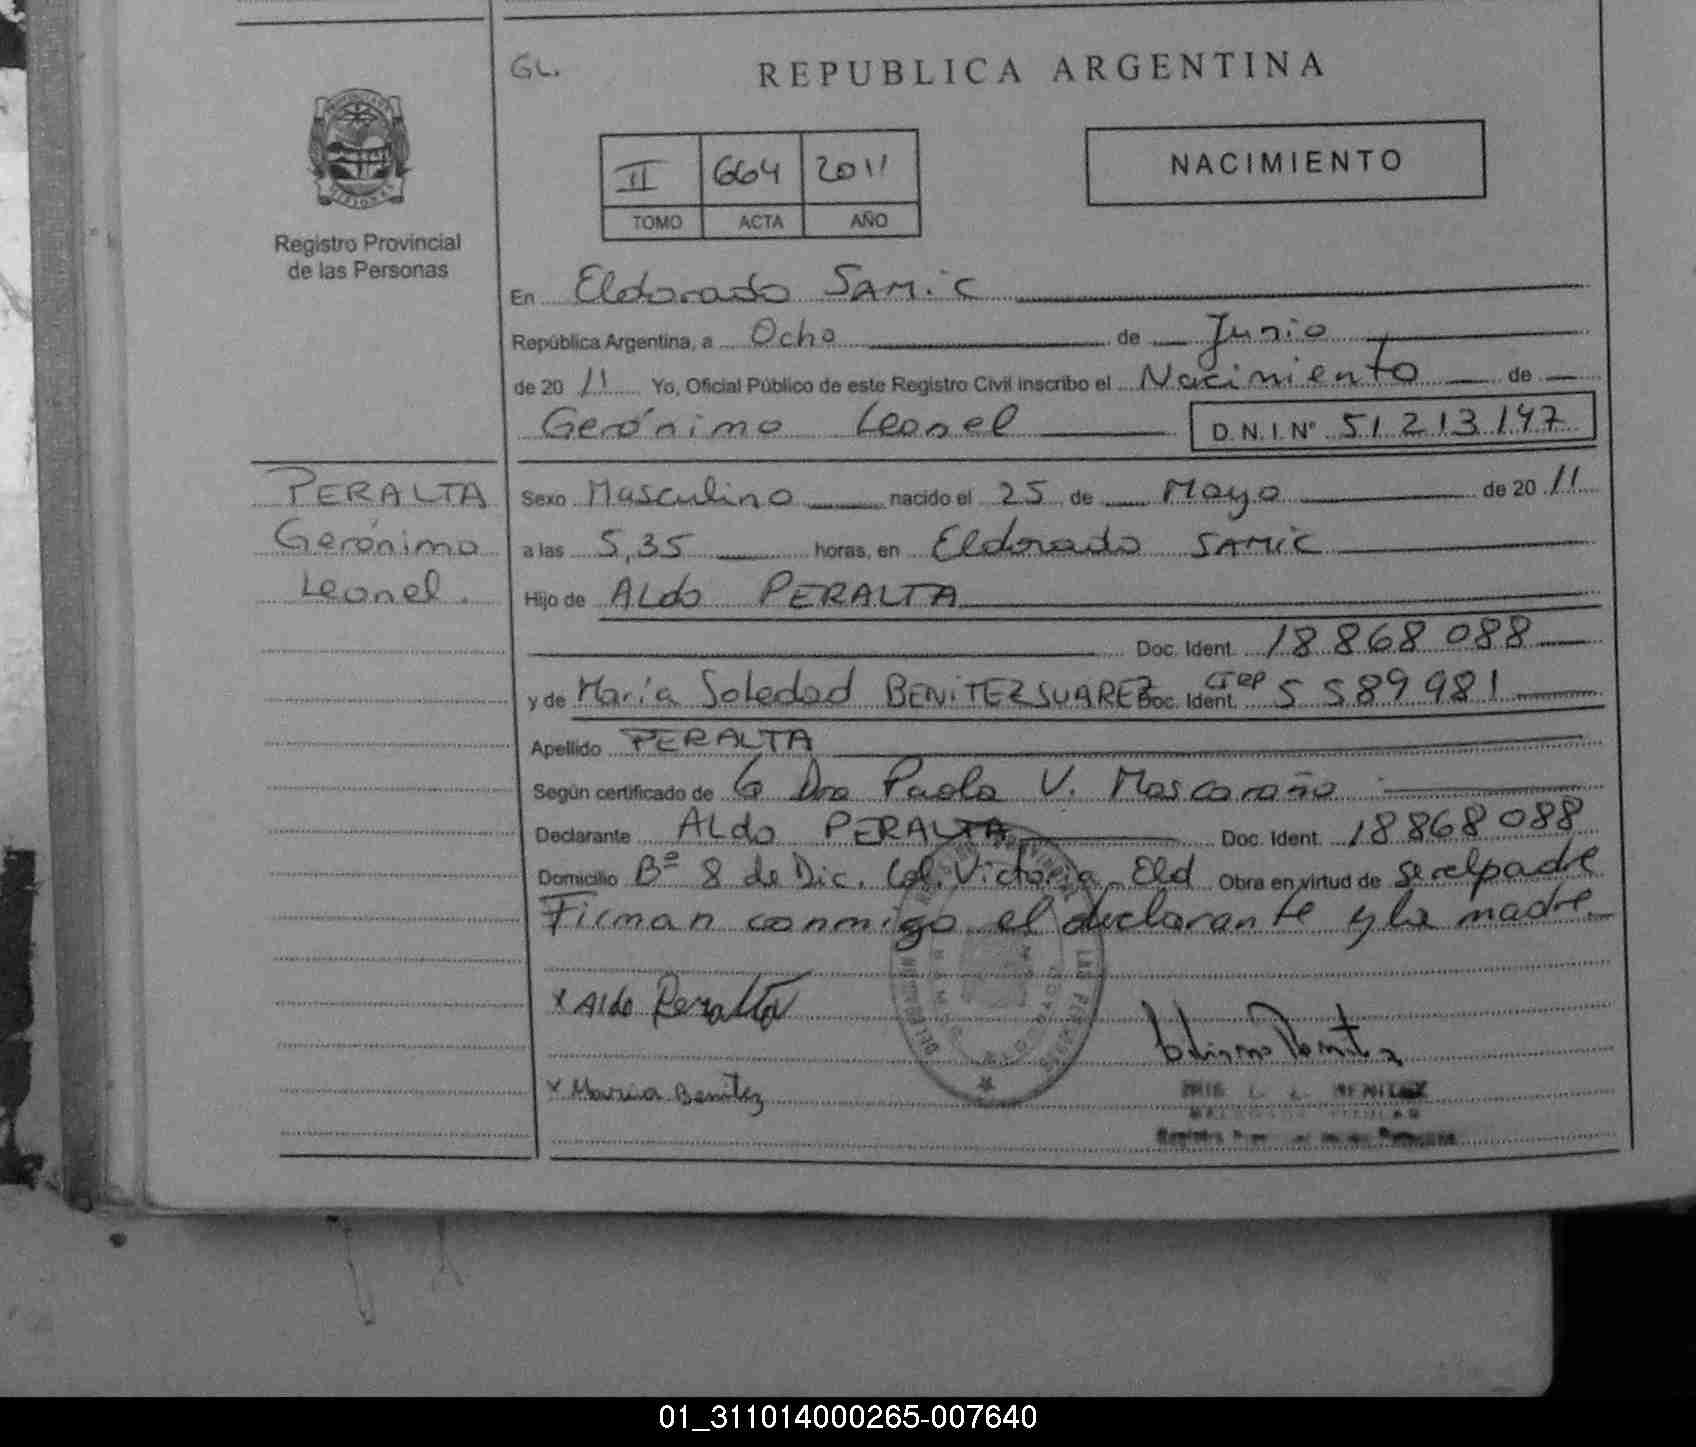 GL.
REPUBLICA ARGENTINA
II 664 2011
TOMO ACTA AÑO
NACIMIENTO
Registro Provincial
de las Personas
En Eldorado SAMiC
República Argentina, a Ocho de Junio
de 20 11 Yo, Oficial Público de este Registro Civil inscribo el Nacimiento de
Gerónimo Leonel D.N.I.Nº 51 213 147
PERALTA
Gerónimo
Leonel.
Sexo Masculino nacido el 25 de Mayo de 20 11
a las 5,35 horas, en Eldorado SAMiC
Hijo de ALdo PERALTA
Doc. Ident. 18 868 088
y de María Soledad BENiTEZ SUAREZ Doc. Ident. 5 589 981
Apellido PERALTA
Según certificado de la Dra Paola V. Mascaraño
Declarante ALdo PERALTA Doc. Ident. 18868 088
Domicilio Bº 8 de Dic. Col. Victoria Eld Obra en virtud de ser el padre
Firman conmigo el declarante y la madre
x Aldo Peralta
x Maria Benitez
BENITEZ